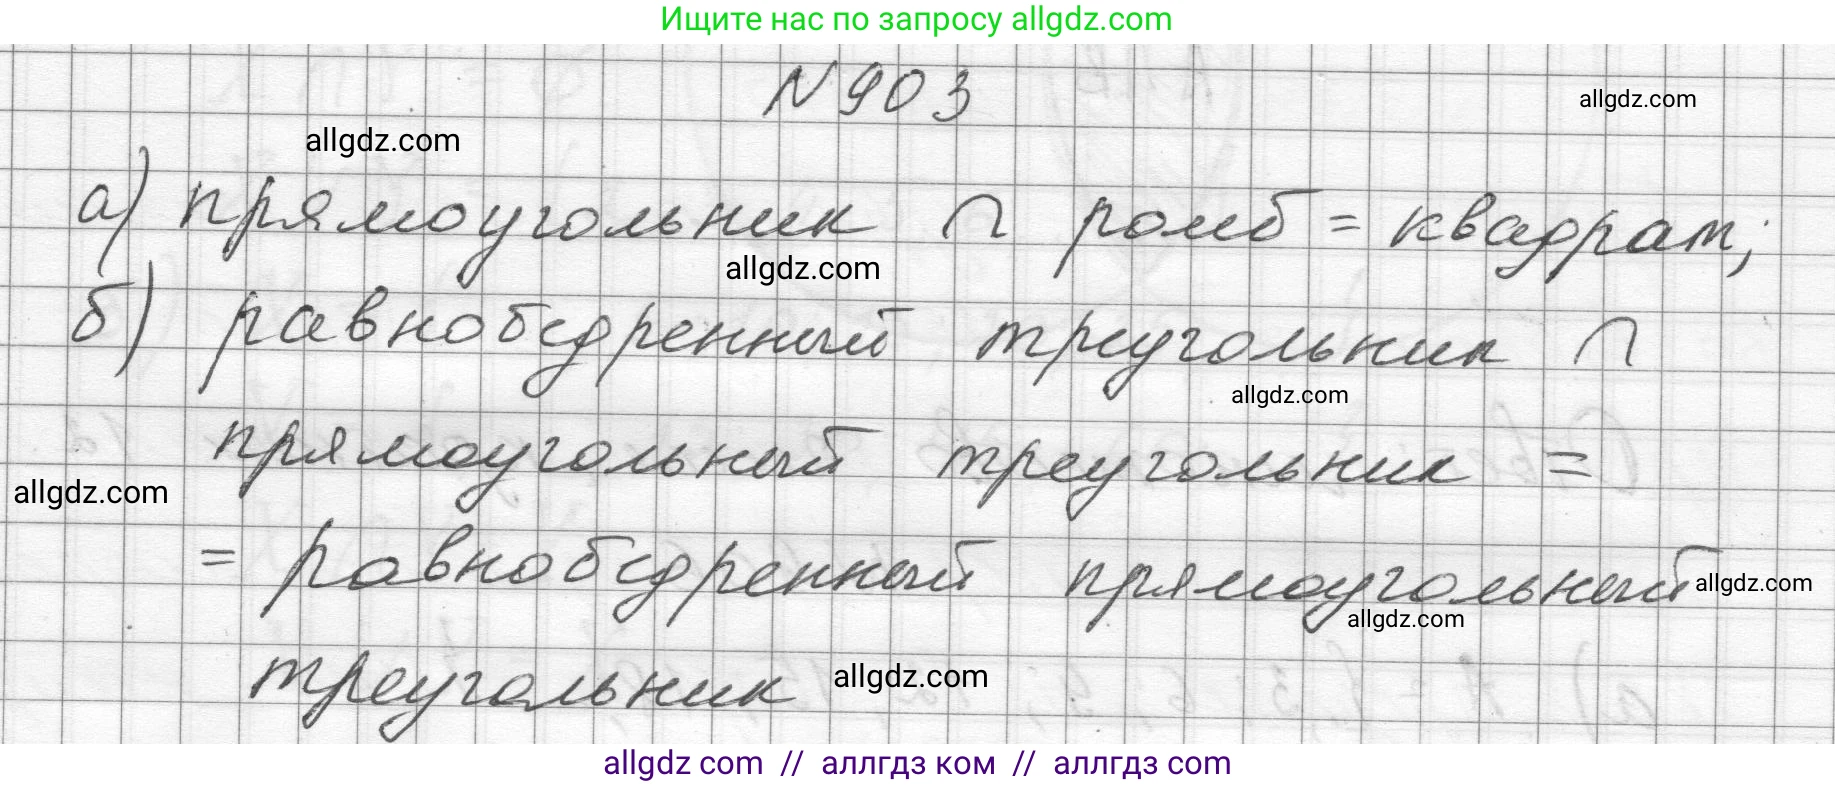 Ищите нас по запросу allgdz.com
N 903
allgdz.com
allgdz.com
а) прямоугольник ∩ ромб = квадрат;
allgdz.com
б) равнобедренный треугольник ∩
allgdz.com
прямоугольный треугольник =
allgdz.com
= равнобедренный прямоугольный
allgdz.com
allgdz.com
треугольник
allgdz.com
allgdz com // аллгдз ком // аллгдз com